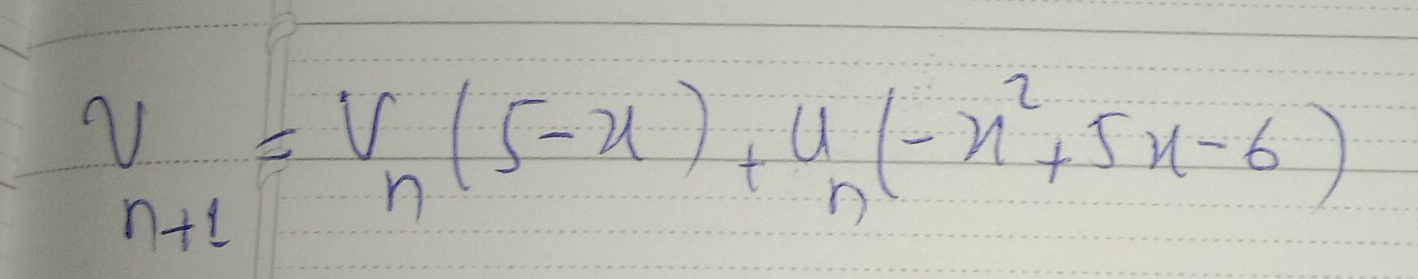 V_{n+1} = V_n (5-x) + U_n (-x²+5x-6)